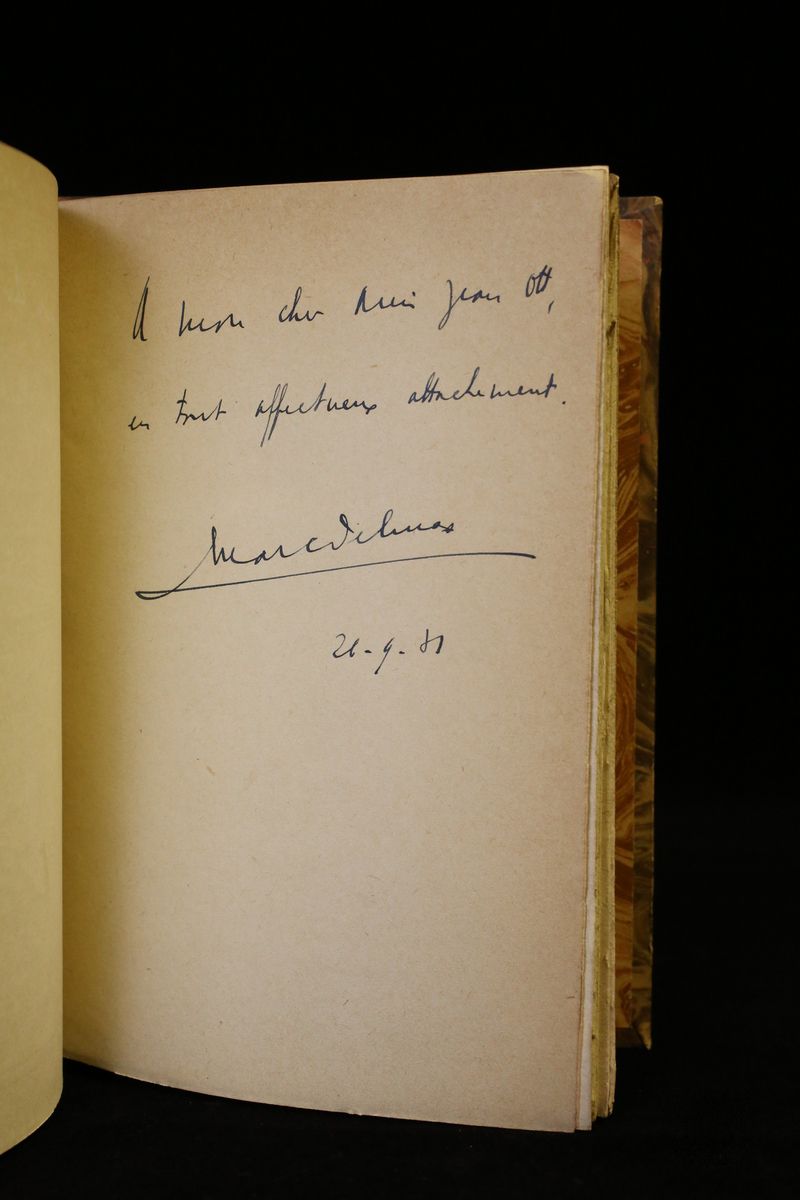 A mon cher ami Jean Ott,
en tout affectueux attachement.
Marc Delmas